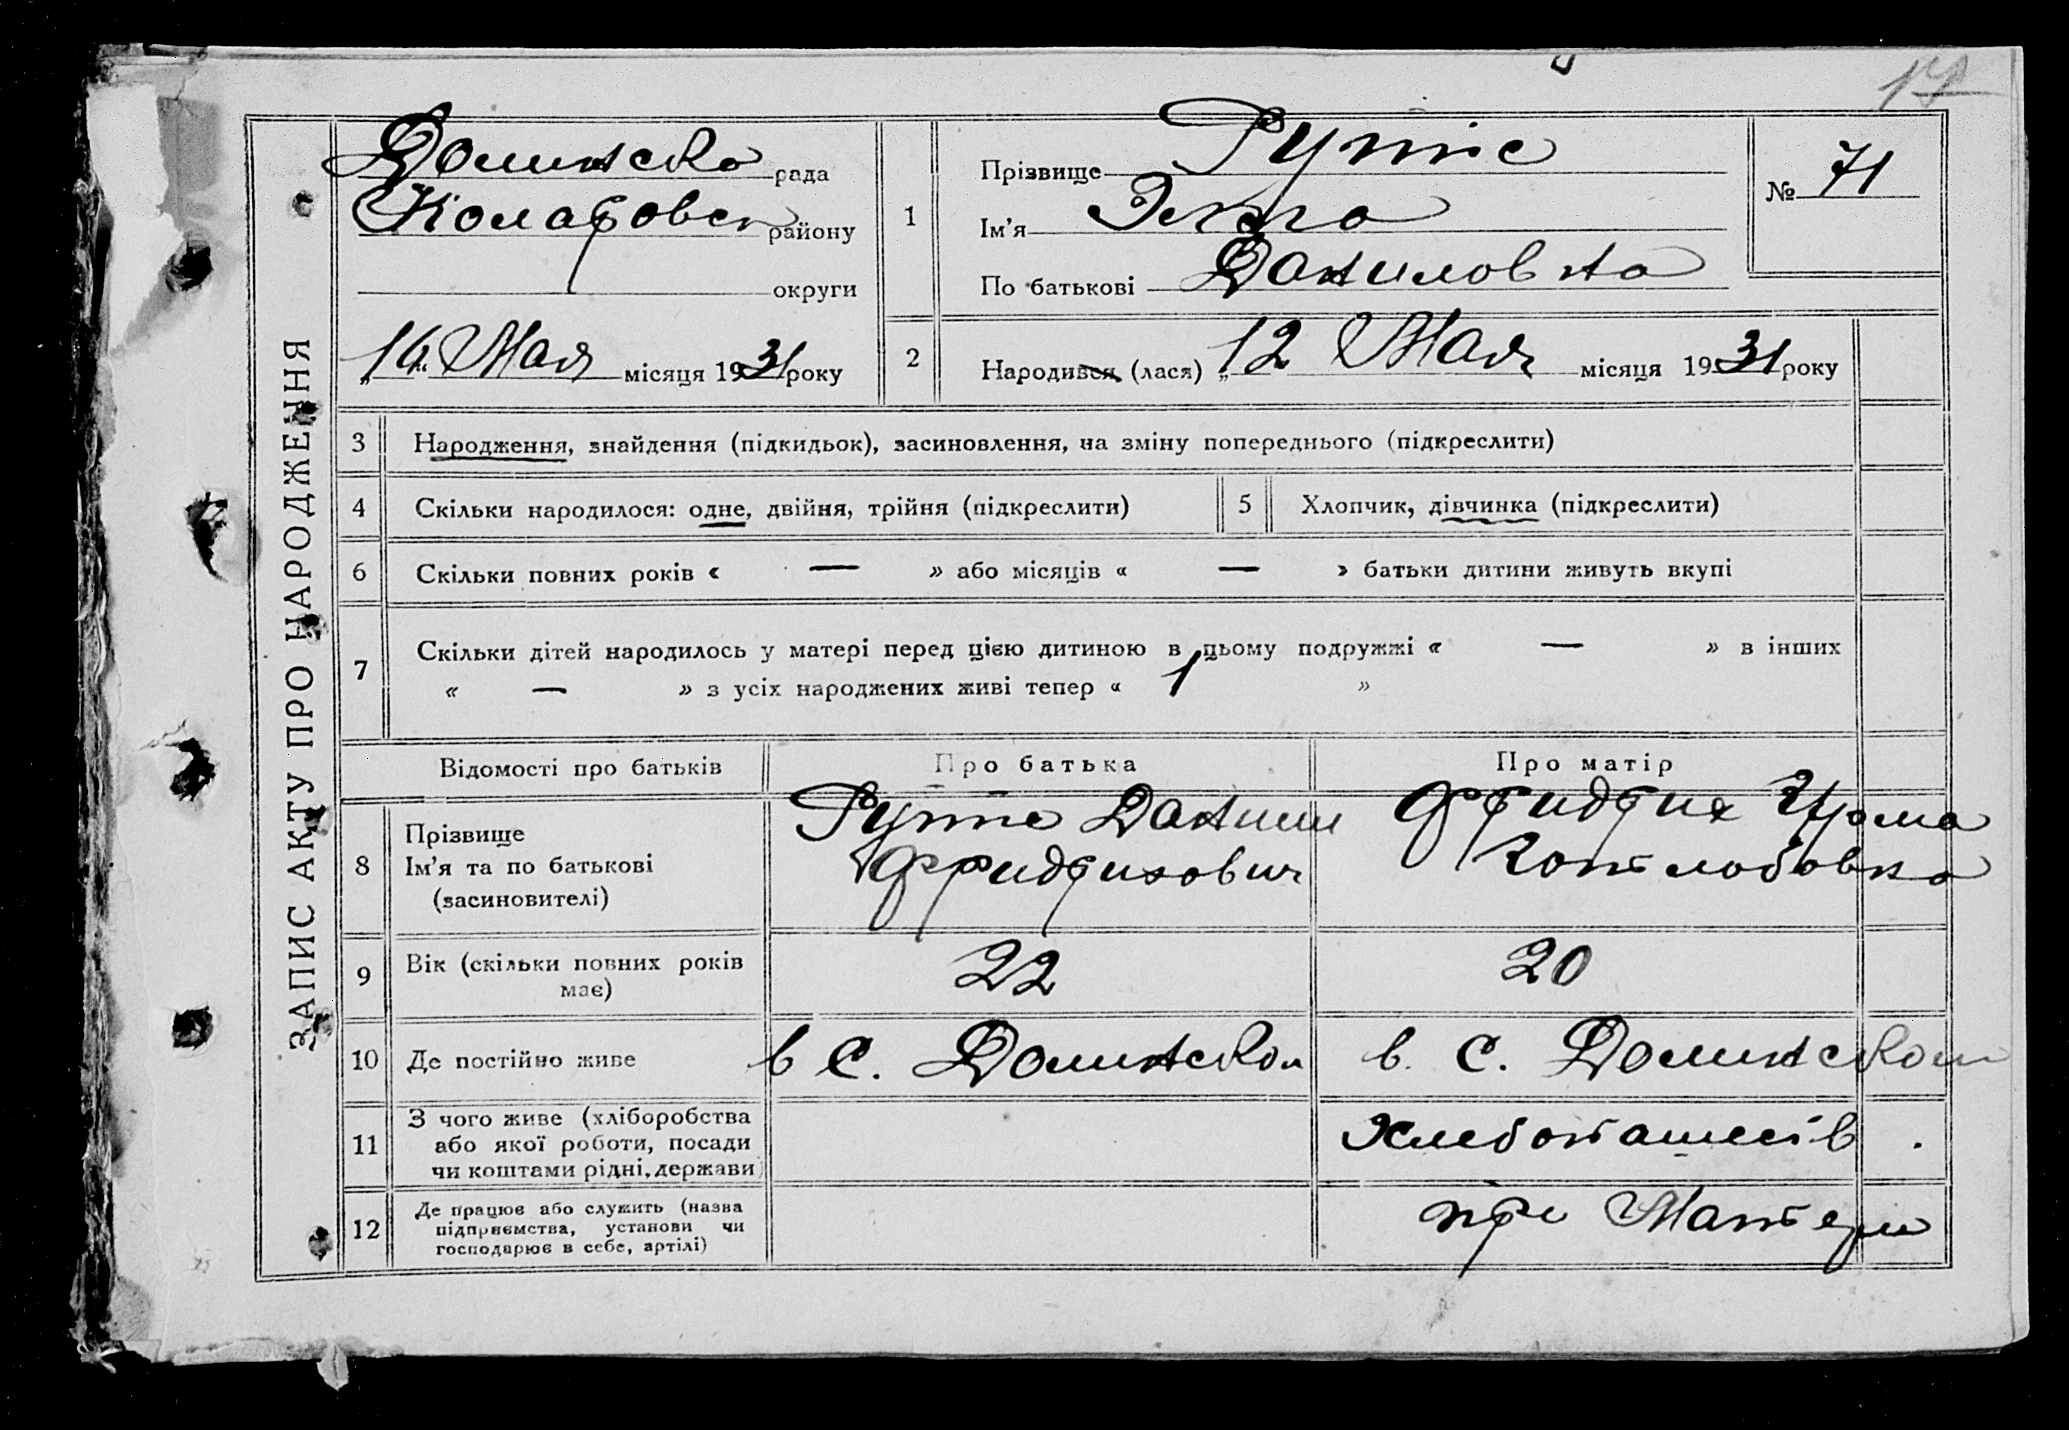 17
ЗАПИС АКТУ ПРО НАРОДЖЕННЯ
Долинска рада
Коларовск району
округи
16 Мая місяця 1931 року
1
Прізвище Рутс
Ім'я
По батькові Даниловна
№ 71
2
Народився (лася) „ 12 Мая місяця 1931 року
3 Народження, знайдення (підкидьок), засиновлення, на зміну попереднього (підкреслити)
4 Скільки народилося: одне, двійня, трійня (підкреслити) 5 Хлопчик, дівчинка (підкреслити)
6 Скільки повних років « — » або місяців « — » батьки дитини живуть вкупі
7 Скільки дітей народилось у матері перед цією дитиною в цьому подружжі « — » в інших
« — » з усіх народжених живі тепер « 1 »
Відомості про батьків Про батька Про матір
8 Прізвище
Ім'я та по батькові
(засиновителі)
Данил
Фридрихович
Фридрих Ирма
Готлобовна
9 Вік (скільки повних років має) 22 20
10 Де постійно живе в с. Долинском в. с. Долинском
11 З чого живе (хліборобства
або якої роботи, посади
чи коштами рідні, держави)
12 Де працює або служить (назва
підприємства, установи чи
господарює в себе, артілі)
при Матери